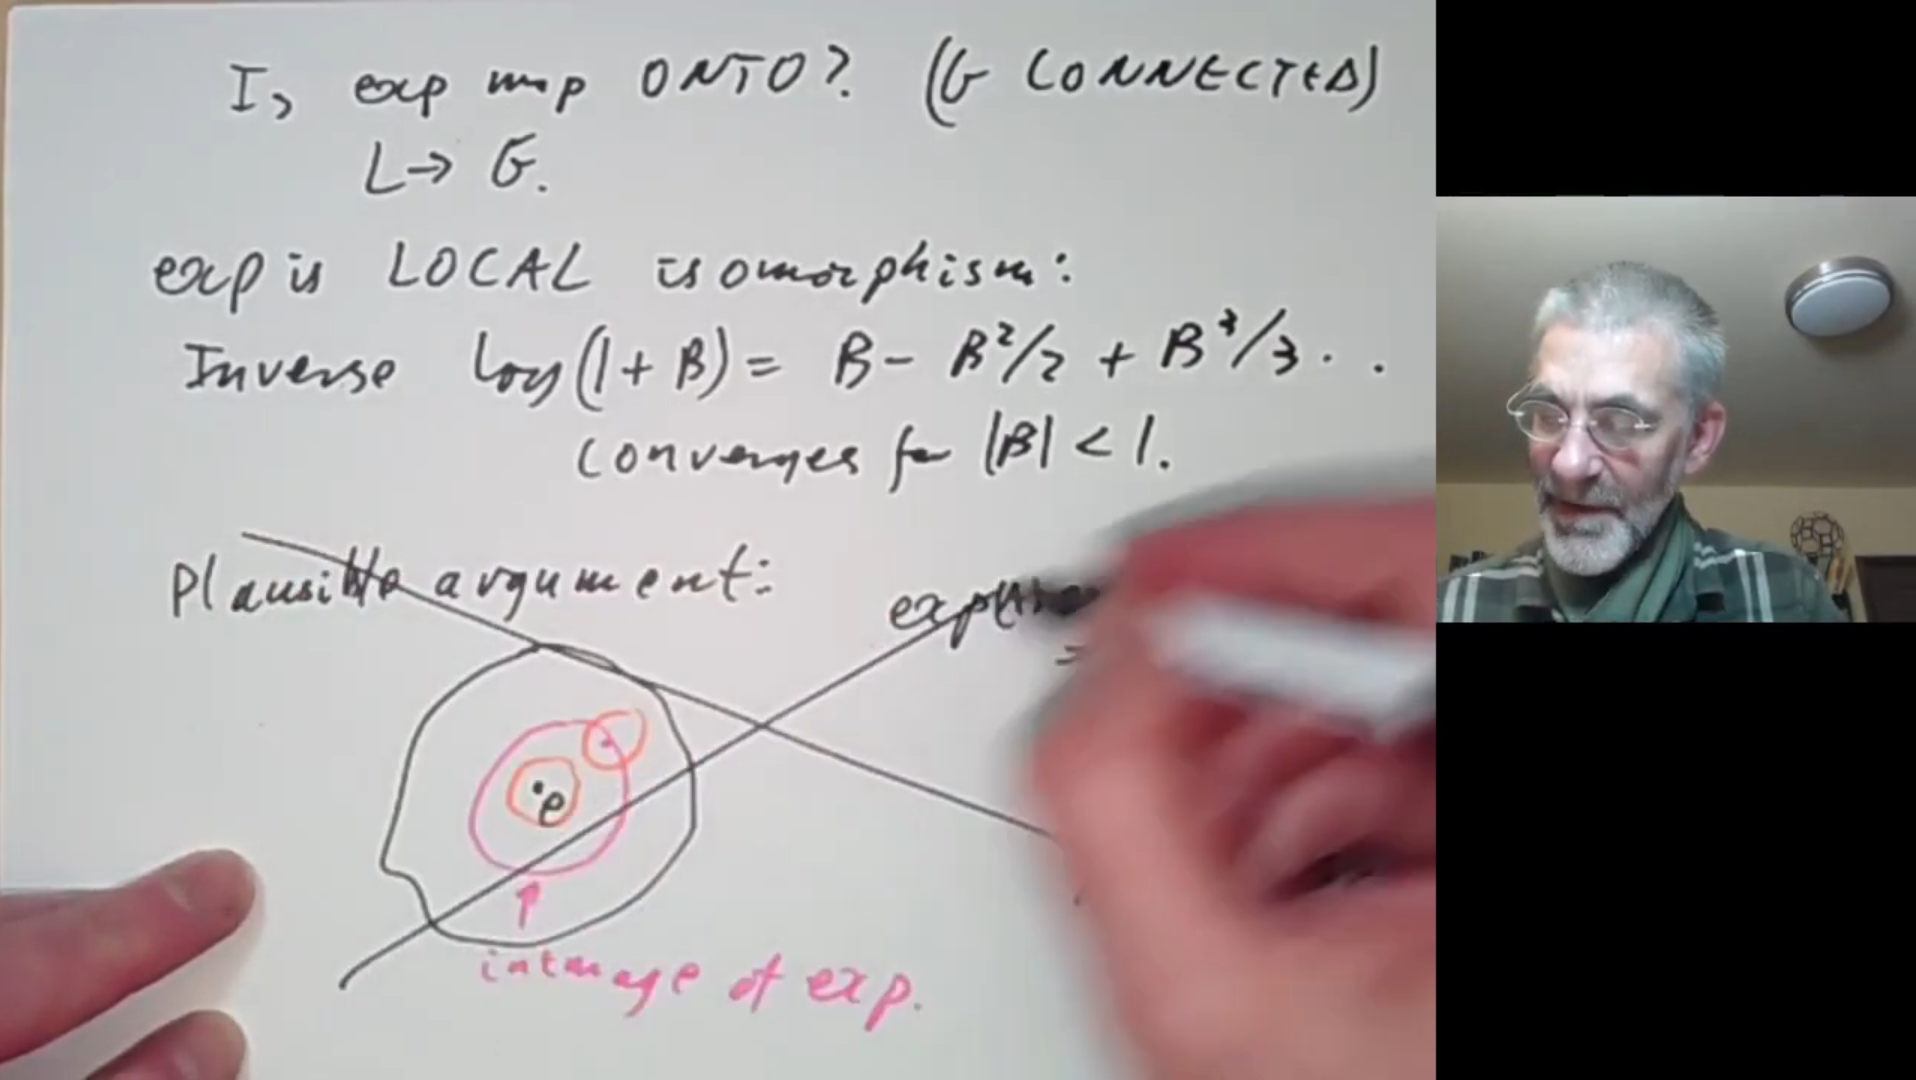 Is exp map ONTO? (G CONNECTED)
L→ G.
exp is LOCAL isomorphism:
Inverse log(1+B) = B - B²/2 + B³/3 . .
converges for |B| < 1.
Plausible argument:
exp(
=
e
↑
intmage of exp.